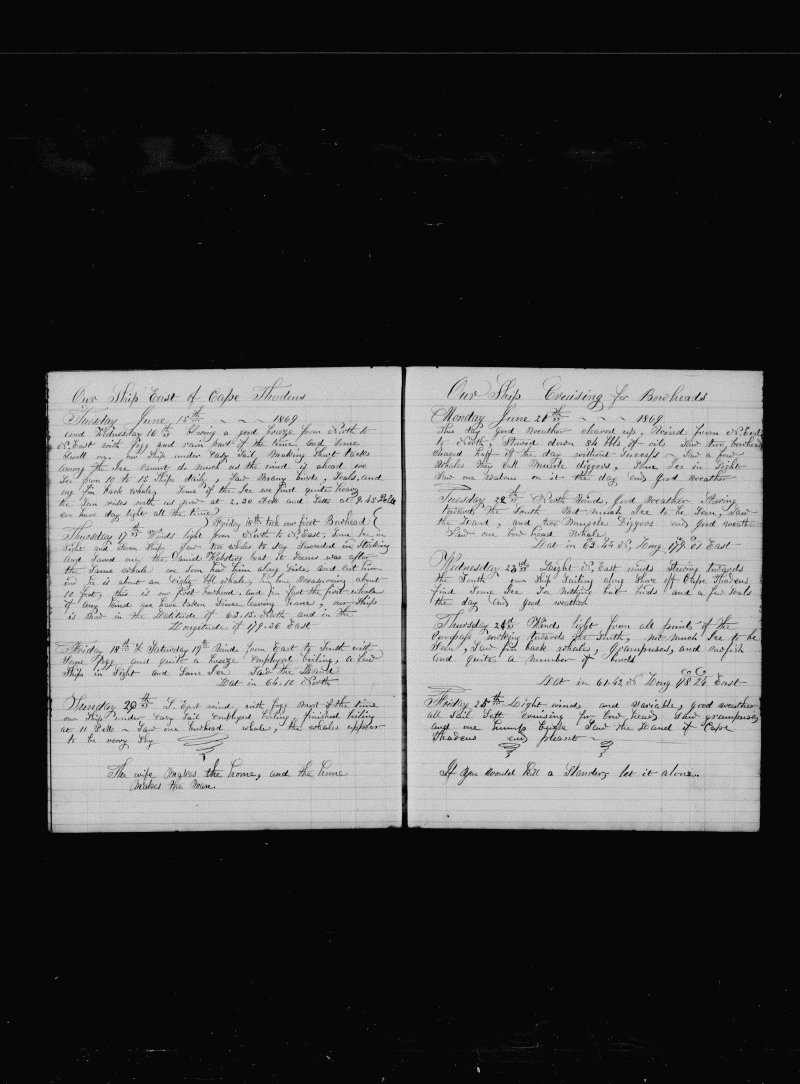 Our Ship East of Cape Thadeus
Tuesday June 15th 1869
and Wednesday 16th Strong a good breeze from North to
N. East with fogg and rain part of the time and Some
Swell on. our Ship under easy Sail, Working Short tacks
among the Ice cannot do much as the wind is ahead we
See from 10 to 15 Ships daily, Saw Many birds, Seals, and
one fin back whale, Some of the Ice we find quite heavy
the Sun rises with us now at 2.30 and Setts at 9.45
we have day light all the time
Friday 18th took our first Bowhead
Thursday 17th Winds light from North to N. East, Some Ice in
Sight and Seven Ships. Saw two whales to day Succeeded in Striking
and Saved one, the Daniel Webster boat it Seems was after
the Same whale we Soon had him along Side, and cut him
in he is about an eighty bbl whale, his bone Measureing about
10 feet, this is our first bowhead, and in fact the first whale
of any kind we have taken Since leaving home, our Ship
is now in the Latitude of 63.15 North and in the
Longitude of 179.36 East
Friday 18th & Saturday 19th Wind from East to South with
Some fogg and quite a breeze Employed boiling, a few
Ships in Sight and Some Ice Saw the Land
Lat in 64.10 North
Sunday 20th S. East wind with fogg most of the time
our Ship under easy Sail employed boiling, finished boiling
at 11 Saw one bowhead whale, the whales appear
to be very Shy
The wife makes the home, and the home
makes the Man.
Our Ship Cruising for Bowheads
Monday June 21st 1869
This day good weather cleared up. Wind from N. East
to North, Stowed down 84 bbls of oil Saw two bowheads
Chased half of the day without Success Saw a few
Whales they call Muscle diggers, Some Ice in Sight
Saw on it the day ends good weather
Tuesday 22nd North Wind, Good Weather Steering
towards the South Not much Ice to be Seen, Saw
the Land, and two Muscle Diggers ends good weather
Saw one bow head Whale
Lat in 63.44 N. Long 179.01 East
Wednesday 23rd Light N. East winds Steering towards
the South our Ship Sailing along Shore off Cape Thadeus
find Some Ice See nothing but birds and a few seals
the day ends good weather
Thursday 24th Winds light from all points of the
Compass working towards the South, not much Ice to be
Seen, Saw fin back whales, Grampuses, and cowfish
and quite a number of birds
Lat in 61.42 N Long 178.24 East
Friday 25th Light winds and variable, good weather
all Sail Sett cruising for bow heads Saw grampuses
and one hump back Saw the Land of Cape
Thadeus ends pleasant
If you would kill a Slander, let it alone.